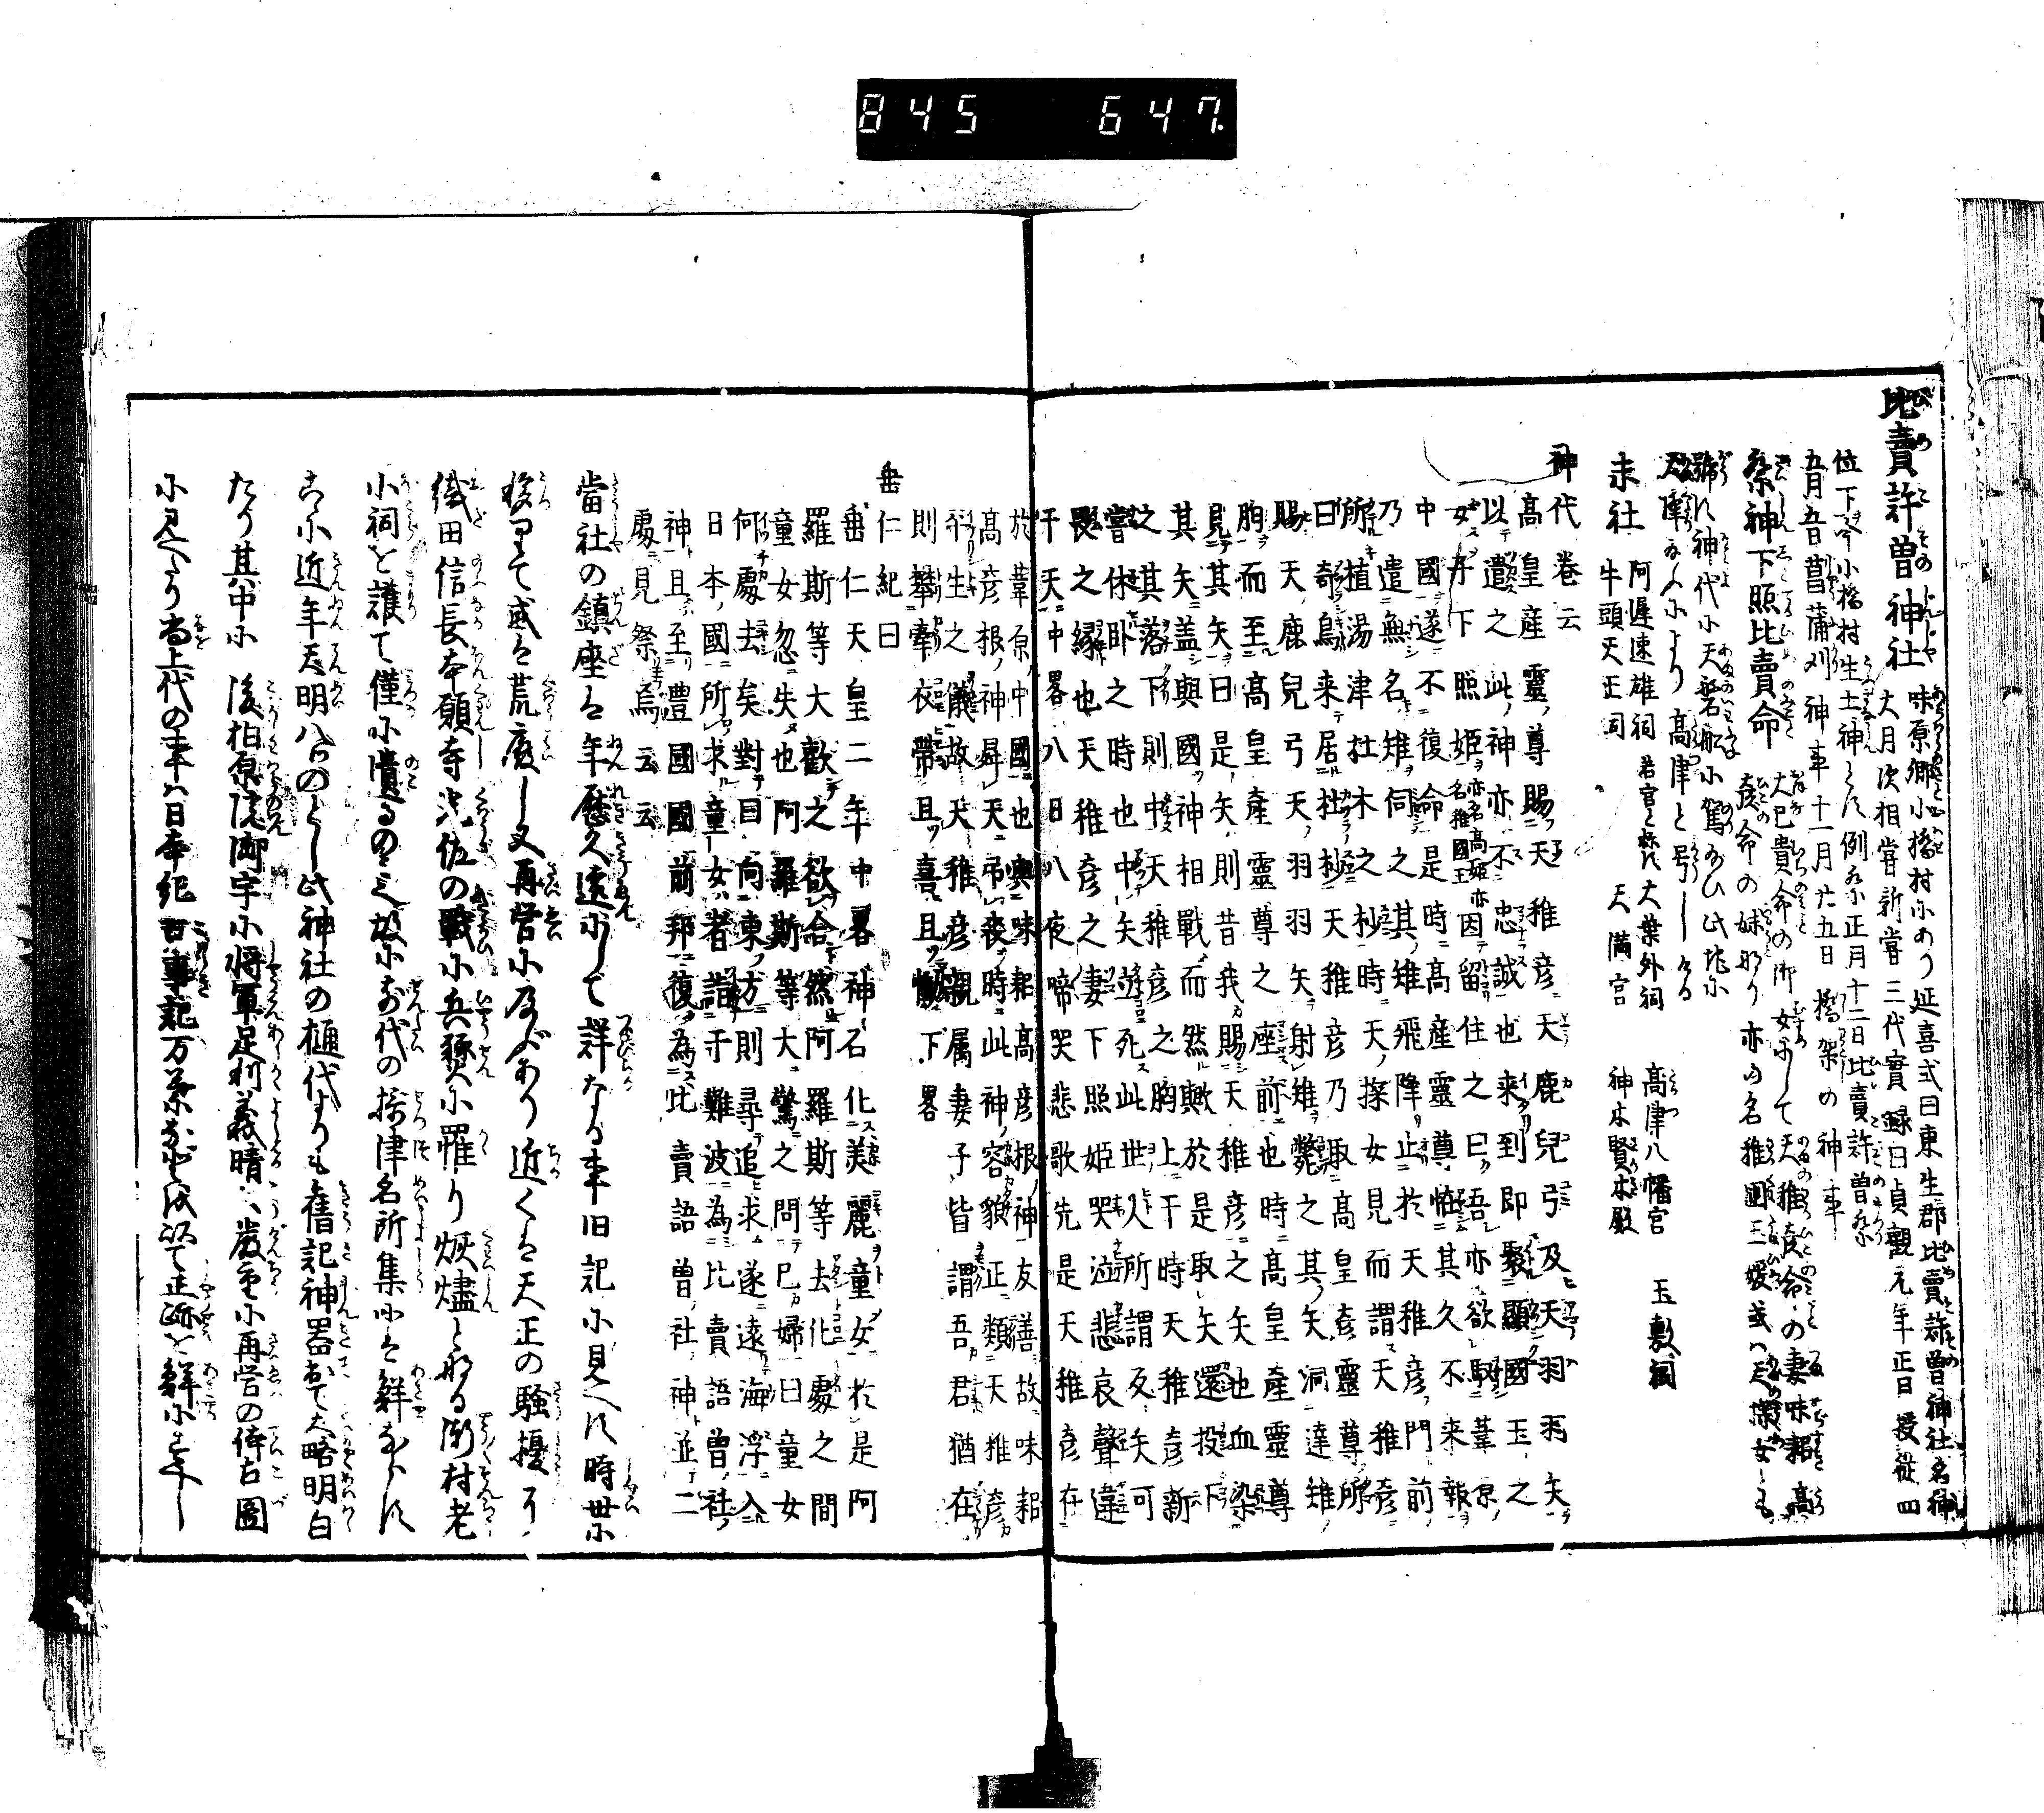 845 647.
比賣許曽神社 味原郷小橋村にあり延喜式曰東生郡比賣許曽神社名神
大月次相嘗新嘗三代實録曰貞觀元年正日授從四
位下今小橋村生土神とす例祭正月十二日比賣許曽祭
五月五日菖蒲刈神事十一月廿五日橋架の神事
祭神下照比賣命 大己貴命の御女にして天稚彦命の妻味耜高
彦命の妹なり亦の名稚國玉媛或ハ天探女とも
號す神代に天磐舩に駕給ひ此地に
天降給ふにより高津と号しける
末社 阿遲速雄祠 若宮と称す 大葉外祠 高津八幡宮 玉敷祠
牛頭天王祠 天満宮 神木賢木殿
神代卷云
高皇産靈尊賜天稚彦天鹿兒弓及天羽羽矢
以遣之此神亦不忠誠也来到即娶顯國玉之
女子下照姫亦名高姫亦名稚國玉因留住之曰吾亦欲馭葦原
中國遂不復命是時高産靈尊怪其久不来報
乃遣無名雉伺之其雉飛降止於天稚彦門前
所植湯津杜木之杪時天探女見而謂天稚彦
曰奇鳥来居杜杪天稚彦乃取高皇産靈尊所
賜天鹿兒弓天羽羽矢射雉斃之其矢洞達雉
胸而至高皇産靈尊之座前也時高皇産靈尊
見其矢曰是矢則昔我賜天稚彦之矢也血染
其矢盖與國神相戰而然歟於是取矢還投下
之其落下則中天稚彦之胸上于時天稚彦新
嘗休臥之時也中矢逝死此世人所謂反矢可
畏之縁也天稚彦之妻下照姫哭泣悲哀聲達
于天中畧八日八夜啼哭悲歌先是天稚彦在
於葦原中國也與味耜高彦根神友善故味耜
高彦根神昇天弔喪時此神容貌正類天稚彦
平生之儀故天稚彦親属妻子皆謂吾君猶在
則攀牽衣帶且喜且慟下畧
垂仁紀曰
垂仁天皇二年中畧神石化美麗童女於是阿
羅斯等大歡之欲合然阿羅斯等去他處之間
童女忽失也阿羅斯等大驚之問己婦曰童女
何處去矣對曰向東方則尋追求遂遠海浮入
日本國所求童女者詣于難波為比賣語曽社
神且至豊國國前郡復為比賣語曽社神並二
處見祭焉云云
當社の鎮座は年歴久遠にして詳なる事旧記に見へず時世に
移りて或は荒廃し又再営に及びあり近くは天正の騒擾に
織田信長本願寺光佐の戦に兵燹に罹り灰燼となる漸村老
小祠を護て僅に遺るのミ故に前代の摂津名所集には鮮ならず
こゝに近年天明八のとし此神社の樋代よりも舊記神器出て大略明白
たり其中に 後柏原院御宇に将軍足利義晴公厳重に再営の倚古圖
に見へたり尚上代の事ハ日本紀古事記万葉などを以て正跡を鮮にすべし